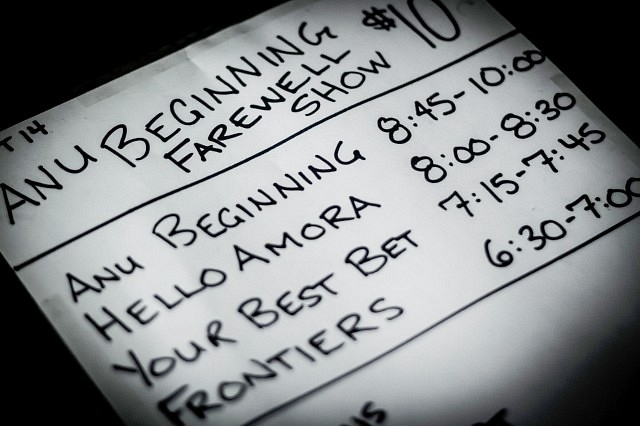 T 14
ANU BEGINNING $10
FAREWELL
SHOW
ANU BEGINNING 8:45-10:00
HELLO AMORA 8:00-8:30
YOUR BEST BET 7:15-7:45
FRONTIERS 6:30-7:00